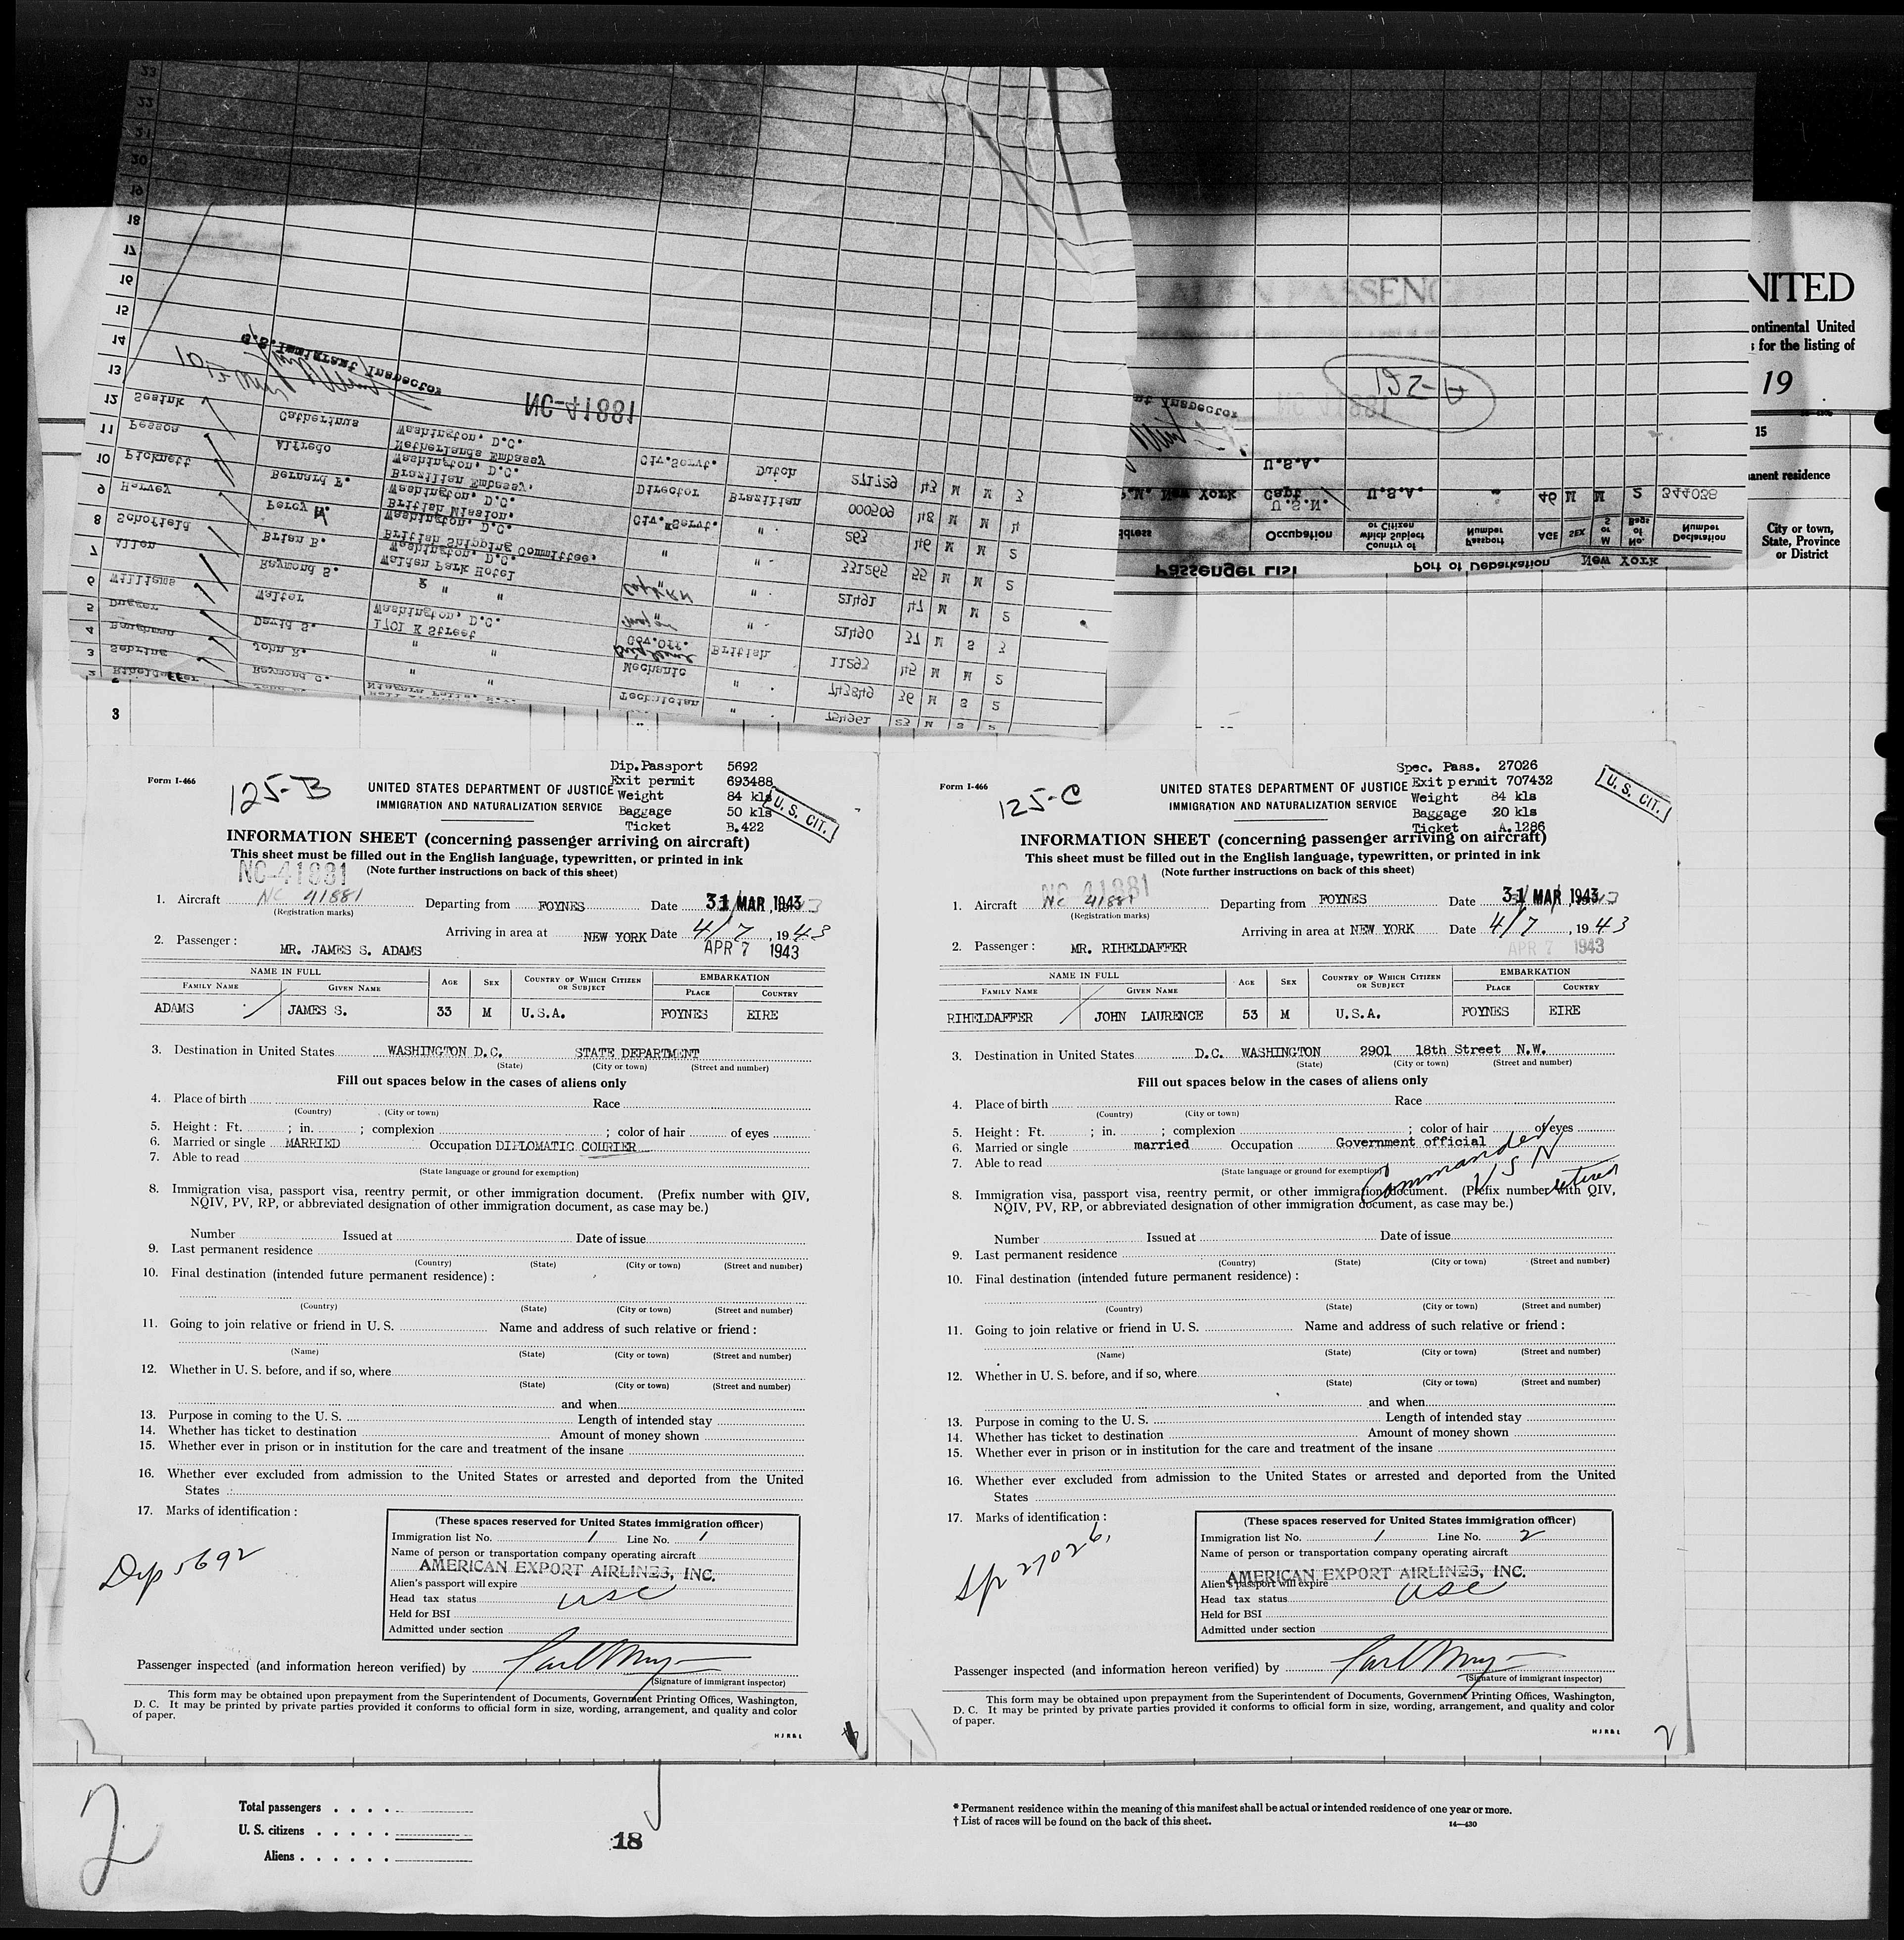 NITED
ontinental United
s for the listing of
19
15
manent residence
City or town,
State, Province
or District
Passenger List
Port of Debarkation New York
ddress Occupation Country of which Subject or Citizen Passport Number AGE SEX M or S No. of Bags Declaration Number
New York Capt. U.S.N. U.S.A. " 46 M M 2 544038
U.S.A.
125-A
2 Riheldaffer
3 Sebring Raymond C.
4 Baughman John R. " " Technician " 754961 23 M S 2
5 Dugger David S. " " Mechanic " 743849 36 M S 2
6 Williams Walter 1701 K Street Washington, D.C. Gov.Off. British 11293 45 M M 2
7 Allen Raymond S. " " " 21490 37 M S 3
8 Schofield Brian B. Walden Park Hotel Washington, D.C. Capt RN " 21491 47 M M 2
9 Harvey Percy H. British Shipping Committee, Washington, D.C. " " 331265 55 M M 2
10 Picknett Bernard F. British Mission, Washington, D.C. Civ.Servt. " 263 46 M M 2
11 Pessoa Alfredo Brazilian Embassy, Washington, D.C. Director Brazilian 000509 48 M M 4
12 Sesink Catherinus Netherlands Embassy Washington, D.C. Civ.Servt. Dutch 271729 43 M M 3
13
NC-41881
U.S. Immigrant Inspector
14
15
16
17
18
19
20
21
22
23
3
Form I-466
125-B
Dip.Passport 5692
Exit permit 693488
Weight 84 kls
Baggage 50 kls
Ticket B.422
U. S. CIT.
UNITED STATES DEPARTMENT OF JUSTICE
IMMIGRATION AND NATURALIZATION SERVICE
INFORMATION SHEET (concerning passenger arriving on aircraft)
This sheet must be filled out in the English language, typewritten, or printed in ink
(Note further instructions on back of this sheet)
NC-41881
1. Aircraft NC 41881 Departing from FOYNES Date 31 MAR 1943
(Registration marks)
Arriving in area at NEW YORK Date 4/7, 1943
APR 7 1943
2. Passenger: MR. JAMES S. ADAMS
NAME IN FULL
FAMILY NAME GIVEN NAME AGE SEX COUNTRY OF WHICH CITIZEN OR SUBJECT EMBARKATION PLACE COUNTRY
ADAMS JAMES S. 33 M U.S.A. FOYNES EIRE
3. Destination in United States WASHINGTON D.C. STATE DEPARTMENT
(State) (City or town) (Street and number)
Fill out spaces below in the cases of aliens only
4. Place of birth Race
(Country) (City or town)
5. Height: Ft. ; in. ; complexion ; color of hair of eyes
6. Married or single MARRIED Occupation DIPLOMATIC COURIER
7. Able to read
(State language or ground for exemption)
8. Immigration visa, passport visa, reentry permit, or other immigration document. (Prefix number with QIV,
NQIV, PV, RP, or abbreviated designation of other immigration document, as case may be.)
Number Issued at Date of issue
9. Last permanent residence
(Country) (State) (City or town) (Street and number)
10. Final destination (intended future permanent residence):
(Country) (State) (City or town) (Street and number)
11. Going to join relative or friend in U. S. Name and address of such relative or friend:
(Name) (State) (City or town) (Street and number)
12. Whether in U. S. before, and if so, where
(State) (City or town) (Street and number)
and when
13. Purpose in coming to the U. S. Length of intended stay
14. Whether has ticket to destination Amount of money shown
15. Whether ever in prison or in institution for the care and treatment of the insane
16. Whether ever excluded from admission to the United States or arrested and deported from the United
States
17. Marks of identification:
Dip 5692
(These spaces reserved for United States immigration officer)
Immigration list No. 1 Line No. 1
Name of person or transportation company operating aircraft
AMERICAN EXPORT AIRLINES, INC.
Alien's passport will expire
Head tax status USC
Held for BSI
Admitted under section
Passenger inspected (and information hereon verified) by
(Signature of immigrant inspector)
This form may be obtained upon prepayment from the Superintendent of Documents, Government Printing Offices, Washington,
D. C. It may be printed by private parties provided it conforms to official form in size, wording, arrangement, and quality and color
of paper.
HJR&L
Form I-466
125-C
Spec. Pass. 27026
Exit permit 707432
Weight 84 kls
Baggage 20 kls
Ticket A.1286
U. S. CIT.
UNITED STATES DEPARTMENT OF JUSTICE
IMMIGRATION AND NATURALIZATION SERVICE
INFORMATION SHEET (concerning passenger arriving on aircraft)
This sheet must be filled out in the English language, typewritten, or printed in ink
(Note further instructions on back of this sheet)
NC 41881
1. Aircraft NC 41881 Departing from FOYNES Date 31 MAR 1943
(Registration marks)
Arriving in area at NEW YORK Date 4/7, 1943
APR 7 1943
2. Passenger: MR. RIHELDAFFER
NAME IN FULL
FAMILY NAME GIVEN NAME AGE SEX COUNTRY OF WHICH CITIZEN OR SUBJECT EMBARKATION PLACE COUNTRY
RIHELDAFFER JOHN LAURENCE 53 M U.S.A. FOYNES EIRE
3. Destination in United States D.C. WASHINGTON 2901 18th Street N.W.
(State) (City or town) (Street and number)
Fill out spaces below in the cases of aliens only
4. Place of birth Race
(Country) (City or town)
5. Height: Ft. ; in. ; complexion ; color of hair of eyes
6. Married or single married Occupation Government official
7. Able to read
(State language or ground for exemption)
Commander USN retired
8. Immigration visa, passport visa, reentry permit, or other immigration document. (Prefix number with QIV,
NQIV, PV, RP, or abbreviated designation of other immigration document, as case may be.)
Number Issued at Date of issue
9. Last permanent residence
(Country) (State) (City or town) (Street and number)
10. Final destination (intended future permanent residence):
(Country) (State) (City or town) (Street and number)
11. Going to join relative or friend in U. S. Name and address of such relative or friend:
(Name) (State) (City or town) (Street and number)
12. Whether in U. S. before, and if so, where
(State) (City or town) (Street and number)
and when
13. Purpose in coming to the U. S. Length of intended stay
14. Whether has ticket to destination Amount of money shown
15. Whether ever in prison or in institution for the care and treatment of the insane
16. Whether ever excluded from admission to the United States or arrested and deported from the United
States
17. Marks of identification:
Sp 27026,
(These spaces reserved for United States immigration officer)
Immigration list No. 1 Line No. 2
Name of person or transportation company operating aircraft
AMERICAN EXPORT AIRLINES, INC.
Alien's passport will expire
Head tax status USC
Held for BSI
Admitted under section
Passenger inspected (and information hereon verified) by
(Signature of immigrant inspector)
This form may be obtained upon prepayment from the Superintendent of Documents, Government Printing Offices, Washington,
D. C. It may be printed by private parties provided it conforms to official form in size, wording, arrangement, and quality and color
of paper.
HJR&L
2
2
Total passengers
U. S. citizens
Aliens
18
* Permanent residence within the meaning of this manifest shall be actual or intended residence of one year or more.
† List of races will be found on the back of this sheet.
14—430